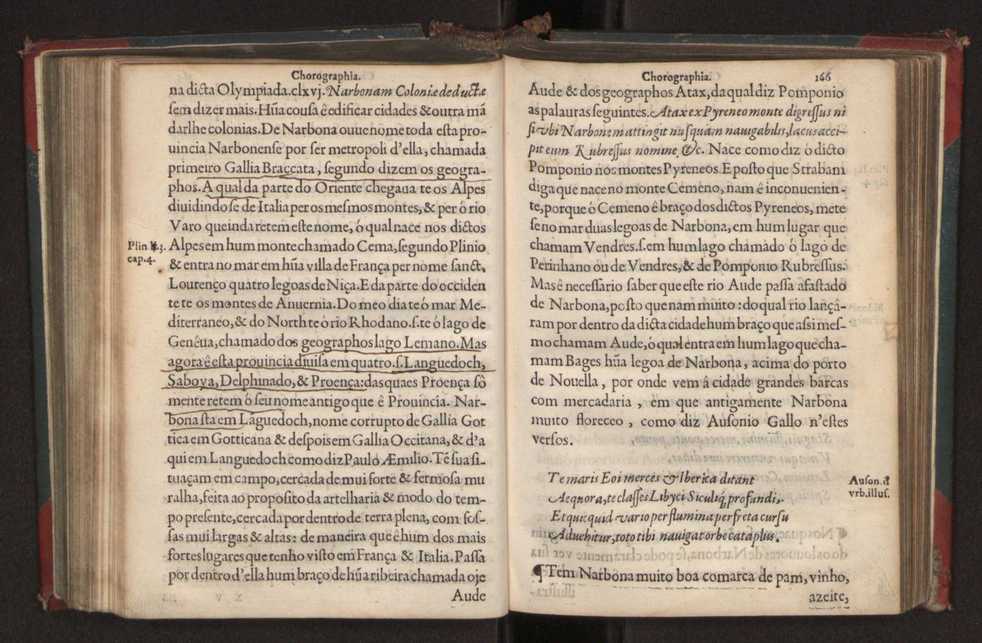 Chorographia.
na dicta Olympiada.clxvj. Narbonam Coloniæ deductæ
sem dizer mais. Hũa cousa ê edificar cidades & outra mã
darlhe colonias. De Narbona ouue nome toda esta pro-
uincia Narbonense por ser metropoli d'ella, chamada
primeiro Gallia Braccata, segundo dizem os geogra-
phos. A qual da parte do Oriente chegaua te os Alpes
diuidindose de Italia per os mesmos montes, & per ó rio
Varo que inda retem este nome, ó qual nace nos dictos
Plin li.3. Alpes em hum monte chamado Cema, segundo Plinio
cap.4. & entra no mar em hũa villa de França per nome sanct,
Lourenço quatro legoas de Niça. E da parte do occiden
te te os montes de Anuernia. Do meo dia te ó mar Me-
diterraneo, & do North te ó rio Rhodano.s.te ó lago de
Genêua, chamado dos geographos lago Lemano. Mas
agora ê esta prouincia diuisa em quatro.s.Languedoch,
Saboya, Delphinado, & Proença: das quaes Proença sò
mente retem ó seu nome antigo que ê Prouincia. Nar-
bona sta em Lãguedoch, nome corrupto de Gallia Got
tica em Gotticana & despois em Gallia Occitana, & d'a
qui em Languedoch como diz Paulo Æmilio. Tê sua si-
tuaçam em campo, cercada de mui forte & fermosa mu
ralha, feita ao proposito da artelharia & modo do tem-
po presente, cercada por dentro de terra plena, com fos-
sas mui largas & altas: de maneira que ê hum dos mais
fortes lugares que tenho visto em França & Italia. Passa
por dentro d'ella hum braço de hũa ribeira chamada oje
Aude
Chorographia. 166
Aude & dos geographos Atax, da qual diz Pomponio
as palauras seguintes. Atax ex Pyreneo monte digressus ni
si vbi Narbonem attingit nusquam nauigabilis, lacus acci-
pit eum Rubressus nomine, &c. Nace como diz ó dicto
Pomponio nos montes Pyreneos. E posto que Strabam
diga que nace no monte Cemeno, nam ê inconuenien-
te, porque ó Cemeno ê braço dos dictos Pyreneos, mete
se no mar duas legoas de Narbona, em hum lugar que
chamam Vendres.s.em hum lago chamado ó lago de
Perinhano ou de Vendres, & de Pomponio Rubressus.
Mas ê necessario saber que este rio Aude passa afastado
de Narbona, posto que nam muito: do qual rio lançâ-
ram por dentro da dicta cidade hum braço que assi mes-
mo chamam Aude, ó qual entra em hum lago que cha-
mam Bages hũa legoa de Narbona, acima do porto
de Nouella, por onde vem â cidade grandes barcas
com mercadaria, em que antigamente Narbona
muito floreceo, como diz Ausonio Gallo n'estes
versos.
Te maris Eoi merces & Iberica ditant
Aequora, te classes Libyci Siculiq; profundi,
Et quicquid vario per flumina per freta cursu
Aduehitur, toto tibi nauigat orbe cataplus.
Auson. d'
vrb.illus.
¶ Tem Narbona muito boa comarca de pam, vinho,
azeite,